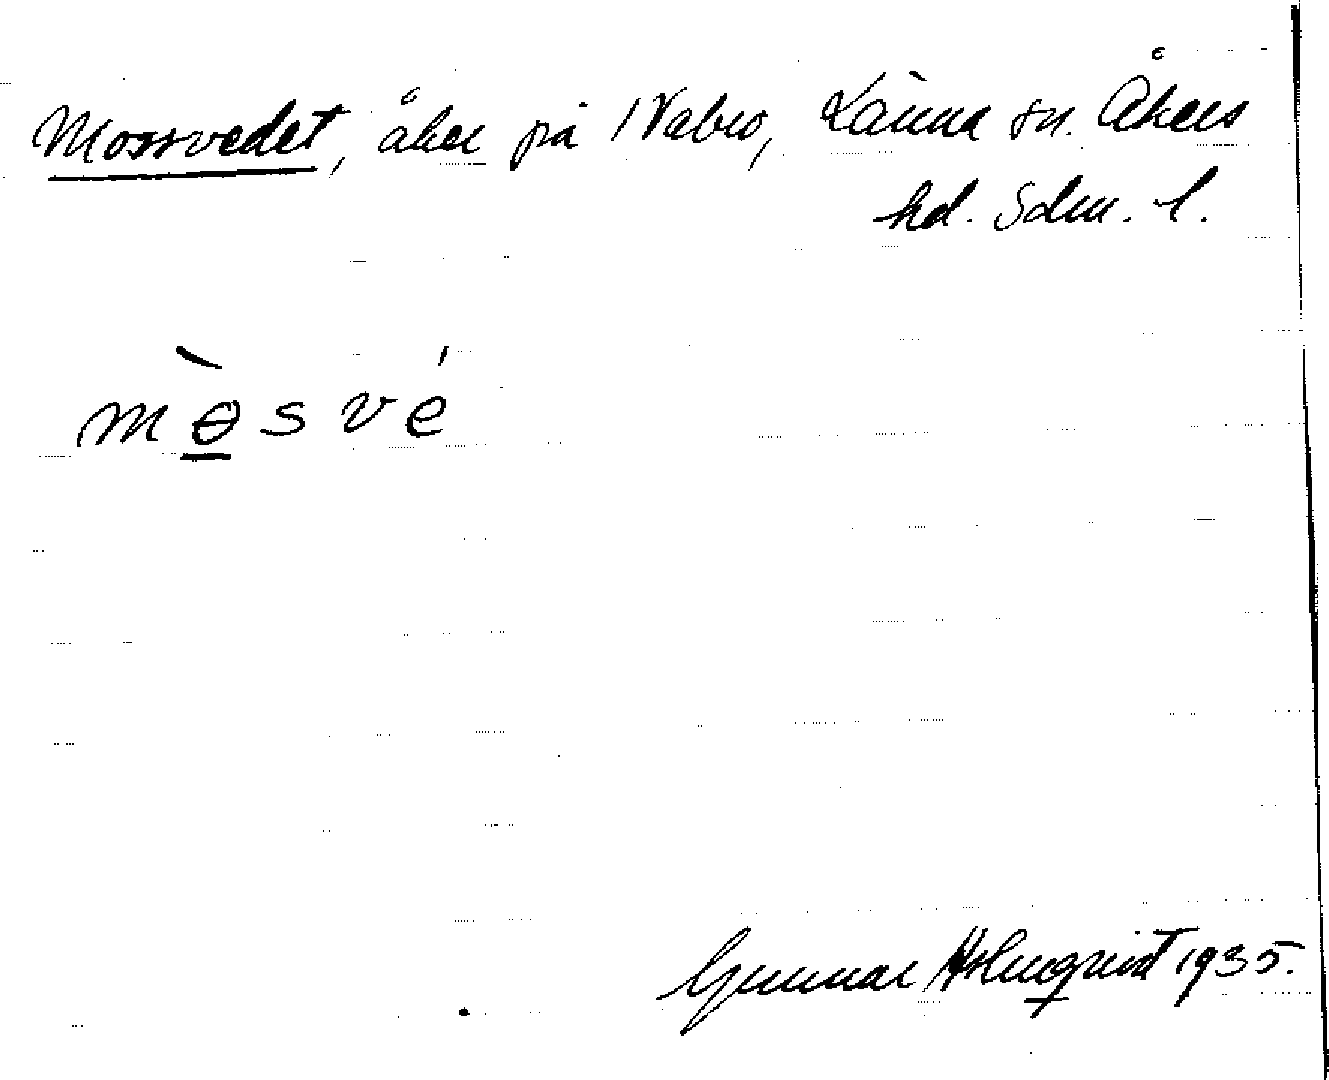 Mossvedet, åker på Nabro, Länna sn. Åkers
hd. Sdm. l.
mɵ̀své
Gunnar Holmqvist 1935.